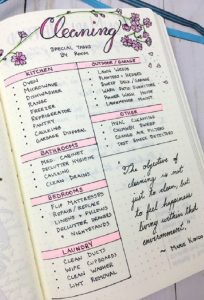 Cleaning
SPECIAL TASKS
BY ROOM
KITCHEN
OVEN
MICROWAVE
DISHWASHER
RANGE
FREEZER
REFRIGERATOR
PANTRY
CAULKING
GARBAGE DISPOSAL
BATHROOMS
MED. CABINET
DECLUTTER HYGIENE
CAULKING
CLEAN DRAINS
BEDROOMS
FLIP MATTRESSES
REPAIR / REPLACE
LINENS + PILLOWS
DECLUTTER DRAWERS
NIGHTSTANDS
LAUNDRY
CLEAN DUCTS
WIPE CUPBOARDS
CLEAN WASHER
LINT REMOVAL
OUTDOOR / GARAGE
LAWN WEEDS
PLANTERS
SWEEP DECK / GARAGE
WASH PATIO FURNITURE
LAWNMOWER MAINT
OTHER
HVAC CLEANING
CHIMNEY SWEEP
CHANGE AIR FILTERS
TEST SMOKE DETECTORS
The objective of
cleaning is not
just to clean, but
to feel happiness
living within that
environment.
MARIE KONDO